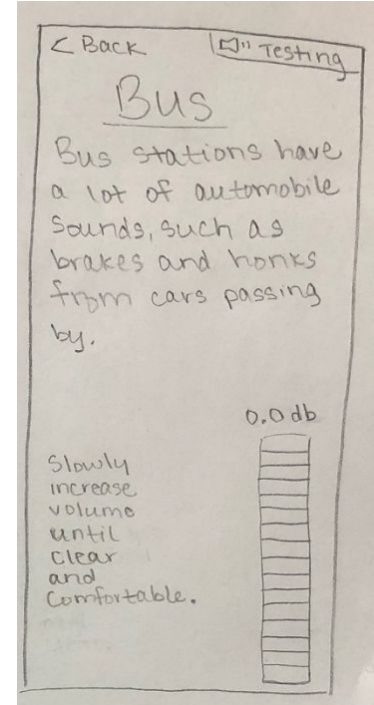 < Back
Testing
Bus
Bus stations have
a lot of automobile
sounds, such as
brakes and honks
from cars passing
by.
0.0 db
Slowly
increase
volume
until
clear
and
comfortable.